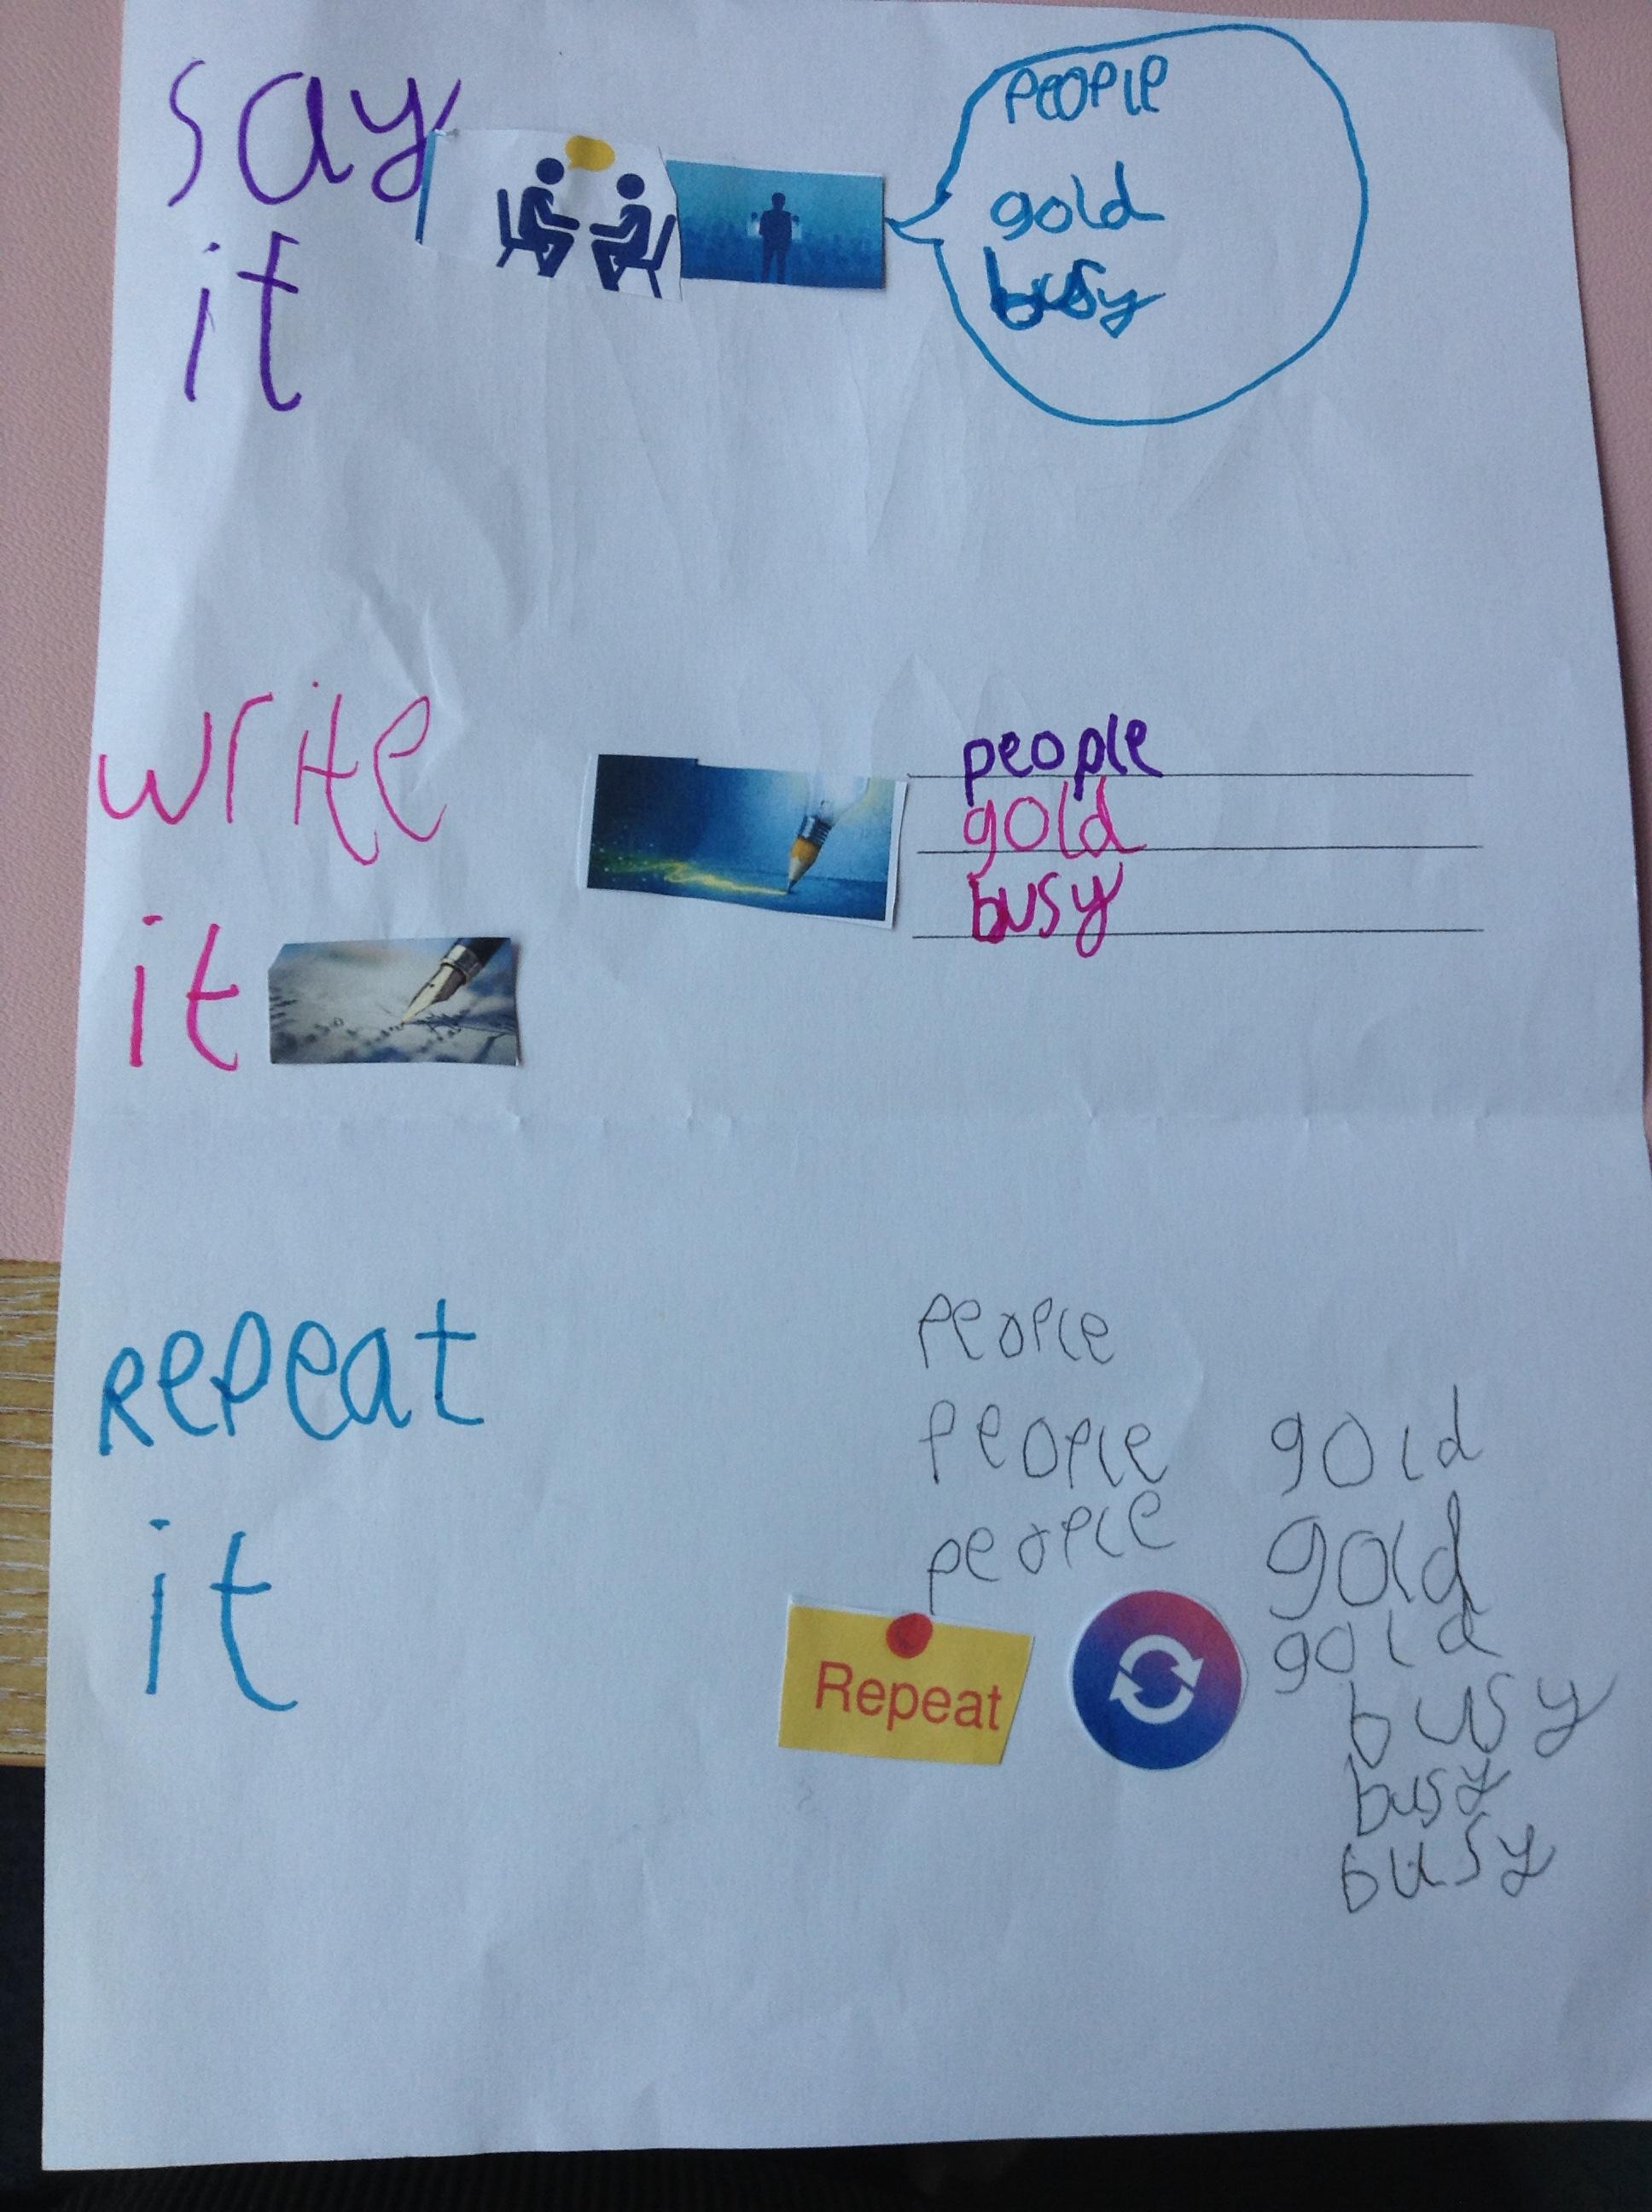 say
it
people
gold
busy
write
it
people
gold
busy
Repeat
it
people
people
people
gold
gold
gold
busy
busy
busy
Repeat